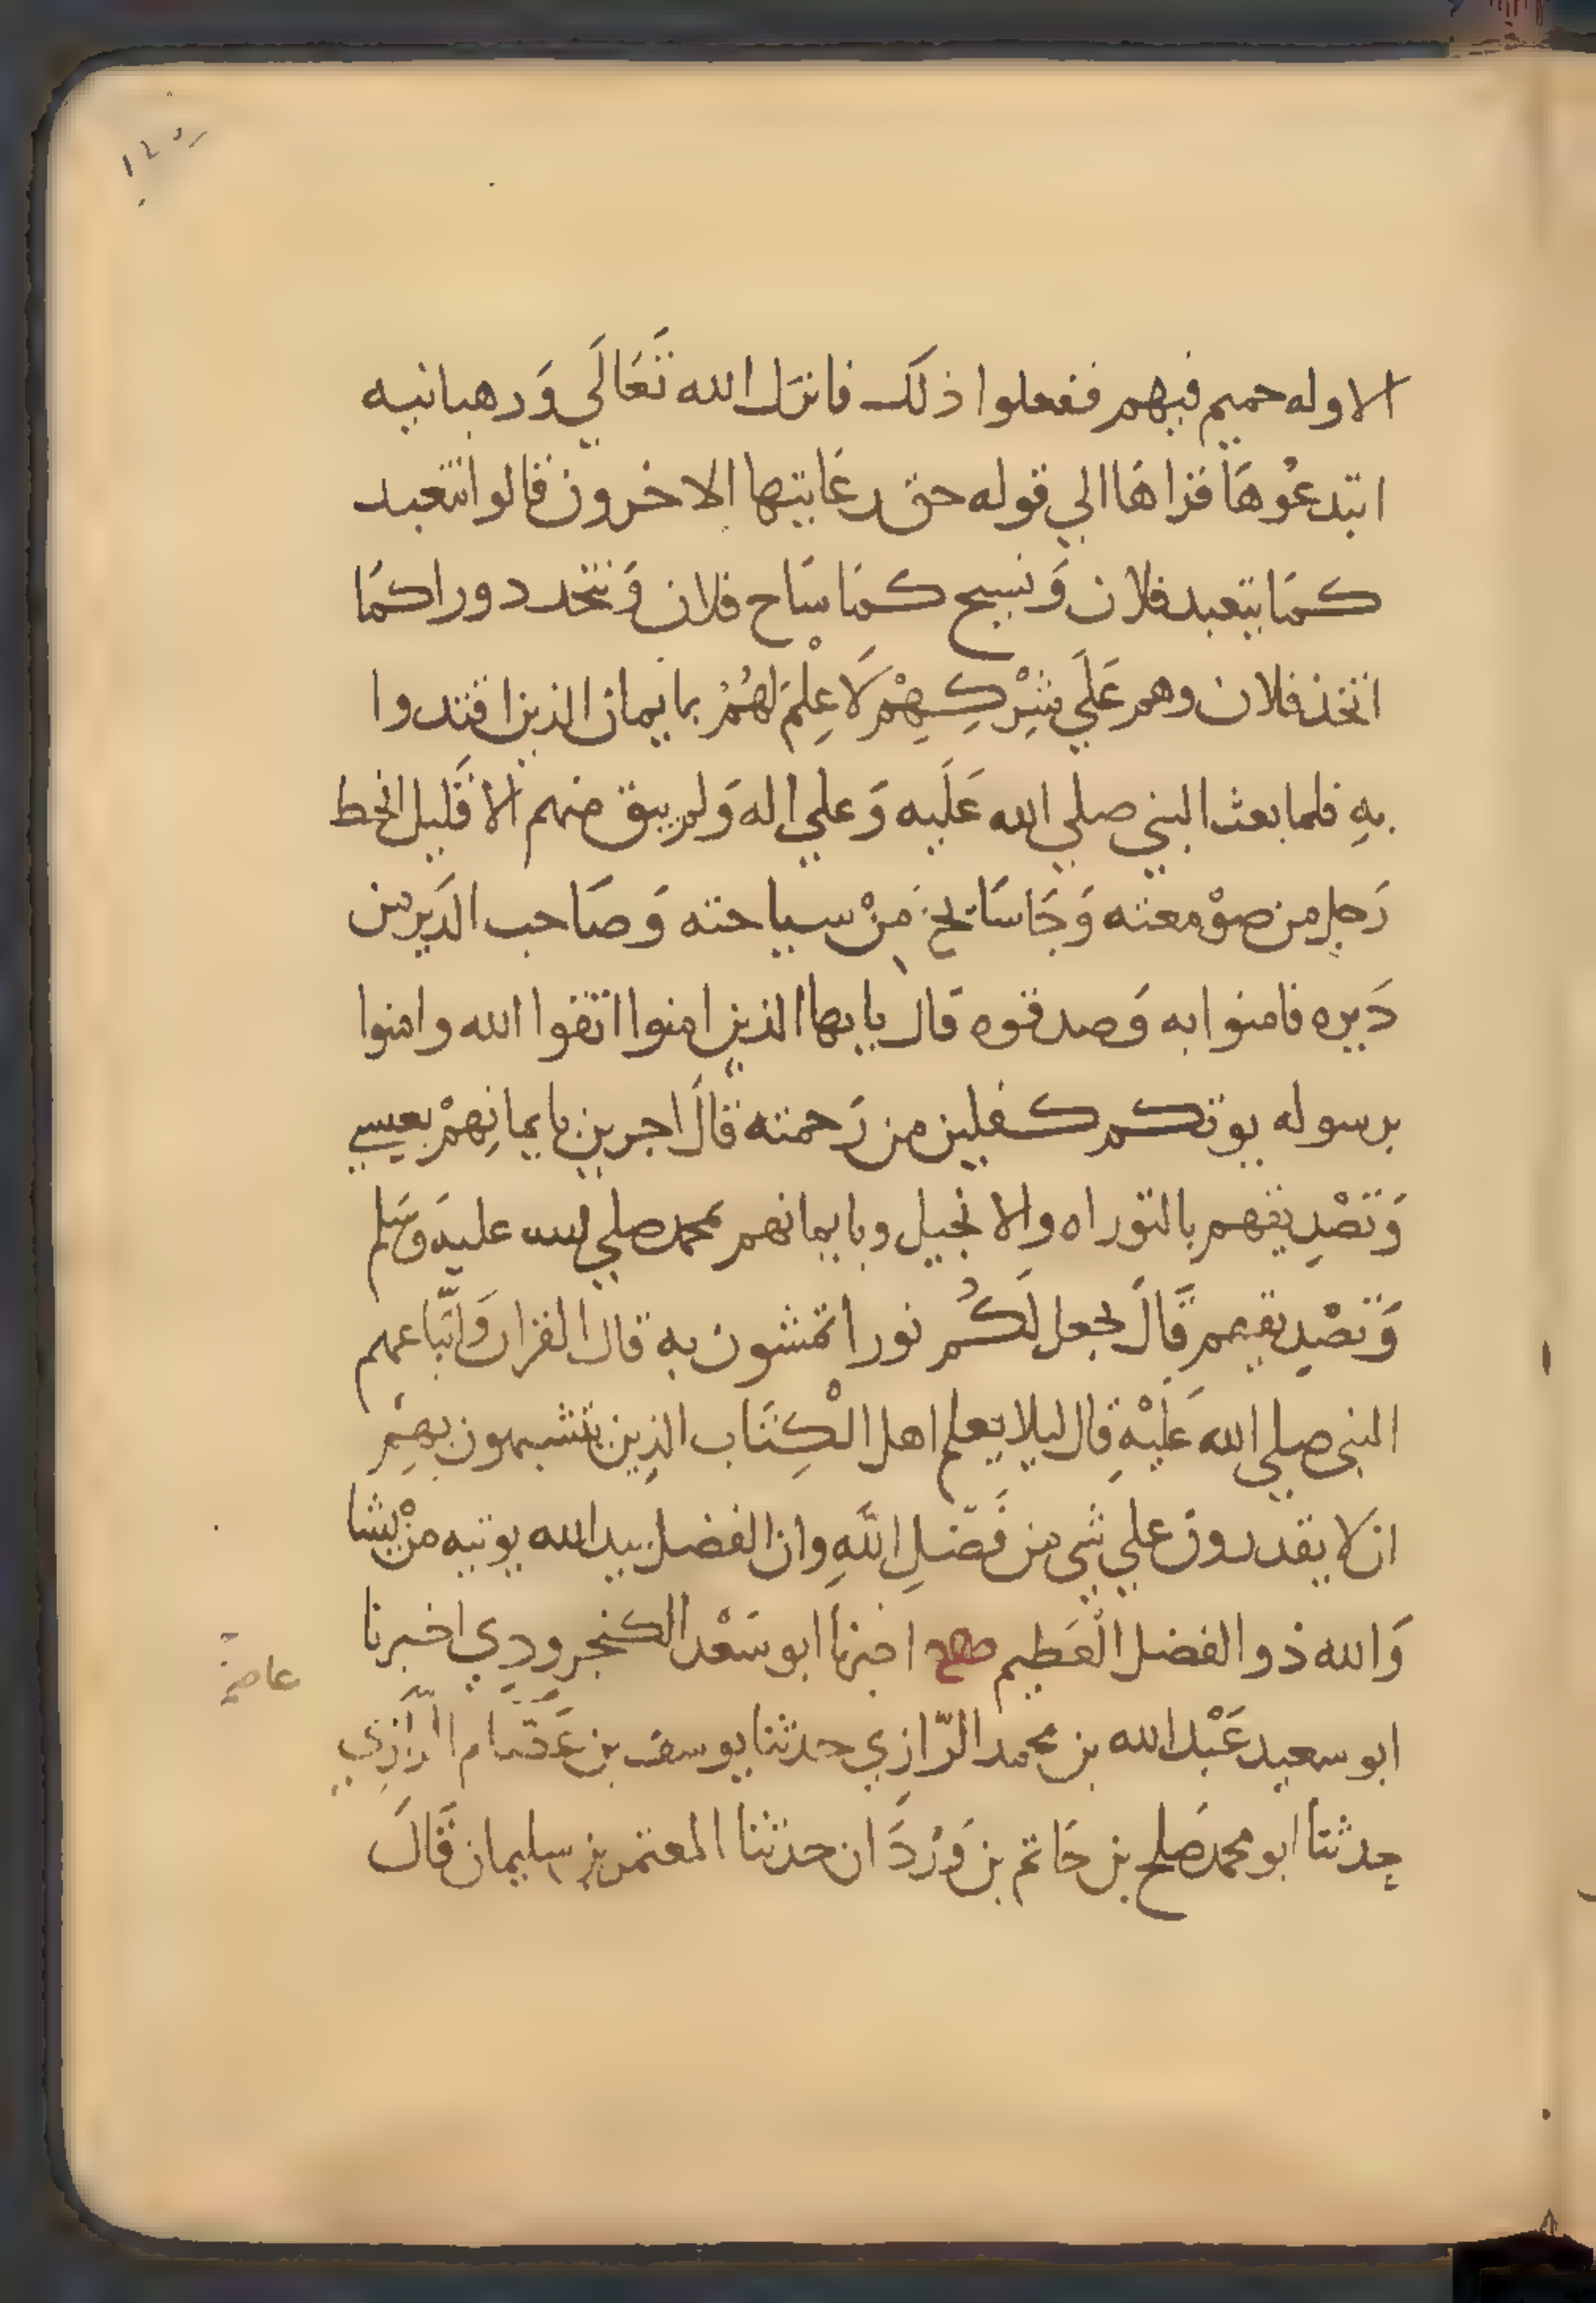 الا وله حميم فيهم ففعلوا ذلك فانزل الله تَعَالَي وَرهبانيه
ابتدعُوهَا قراهَا الي قوله حق رعَايتها الاخرون قالوا نتعبد
كمَا يتعبد فلان وَنسيح كمَا سَاح فلان وَنتخد دورا كمَا
اتخذ فلان وهم عَلَي شِرْكِهِمْ لَا عِلْمَ لهُمْ بايمان الذين اقتدوا
بهِ فلما بعث النبي صلي الله عَلَيه وَعلي اله وَلم يبق منهم الا قَليل انحط
رَجل من صوْمعته وَجَا سَايح مِنْ سياحته وَصَاحب الدَير من
دَيره فامنوا به وَصدقوه قال يايها الذين امنوا اتقوا الله وامنوا
برسوله يوتكم كفلين من رَحمته قالَ اجرين بايمانِهمْ بعيسي
وَتصْدِيقهم بالتوراه والانجيل وبايمانهم بمحمد صلي الله عليه وَسَلم
وَتصْدِيقهم قَالَ يجعل لَكُم نورا تمشون به قال القران وَاتّباعهم
النبي صلي الله عَلَيْهِ قال ليلا يعلم اهل الْكِتَاب الذين يتشبهون بهِمْ
ان لا يقدرون علي شي من فَضلِ اللهِ وان الفضل بيد الله يوتيه منْ يشا
وَالله ذو الفضل الْعَظيم اخبرنا ابو سَعْد الكنجرودي اخبرنا
ابو سعيد عَبْد الله بن محمد الرّازي حدثنا يوسف بن عَصَام الرّازي
عاصم
حدثنا ابو محمد صَلح بن حَاتم بن وَرْدَان حدثنا المعتمر بن سليمان قَالَ